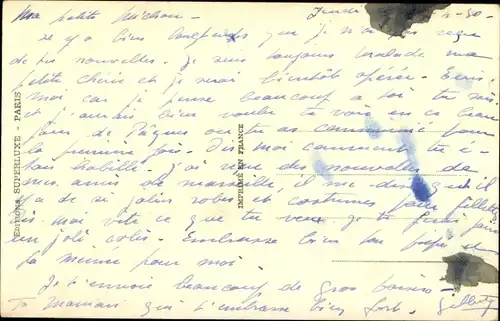 Ma petite Michou - Jeudi
il y a bien longtemps que je n'ai pas reçu
de tes nouvelles. Je suis toujours malade ma
petite chérie et je serai bientôt opérée. Ecris-
moi car je pense beaucoup à toi tu sais
et j'aurais bien voulu te voir en ce beau
jour de Pâques ou tu as communié pour
la première fois. Dis moi comment tu é-
tais habillée. J'ai reçu des nouvelles de
mes amis de Marseille il me dise qu'il
y a de si jolies robes et costumes pour fillettes
dis-moi vite ce que tu veux je te ferai faire
un joli colis. Embrasse bien ton
pour moi
Je t'envoie beaucoup de gros baisers
Ta maman qui t'embrasse bien fort. Gilberte
EDITIONS SUPERLUXE - PARIS
IMPRIMÉ EN FRANCE